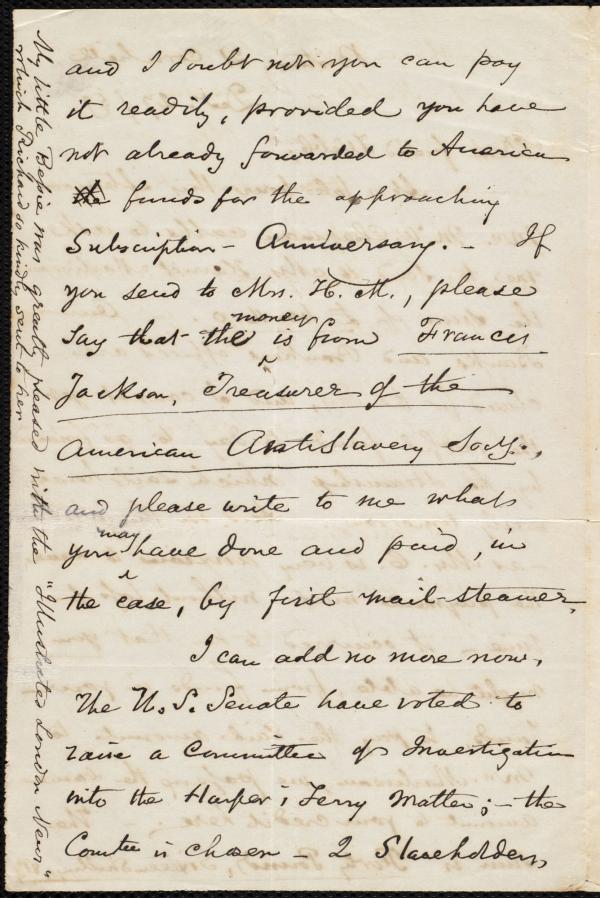 and I doubt not you can pay
it readily, provided you have
not already forwarded to America
the funds for the approaching
Subscription - Anniversary. - If
you send to Mrs. H. M., please
say that the money is from Francis
Jackson, Treasurer of the
American AntiSlavery Socy.,
and please write to me what
you may have done and paid, in
the case, by first mail-steamer.
I can add no more now.
The U. S. Senate have voted to
raise a Committee of Investigation
into the Harper's Ferry matter; - the
Comtee is chosen - 2 Slaveholders,
My little Bessie was greatly pleased with the "Illustrated London News"
which Richard so kindly sent to her